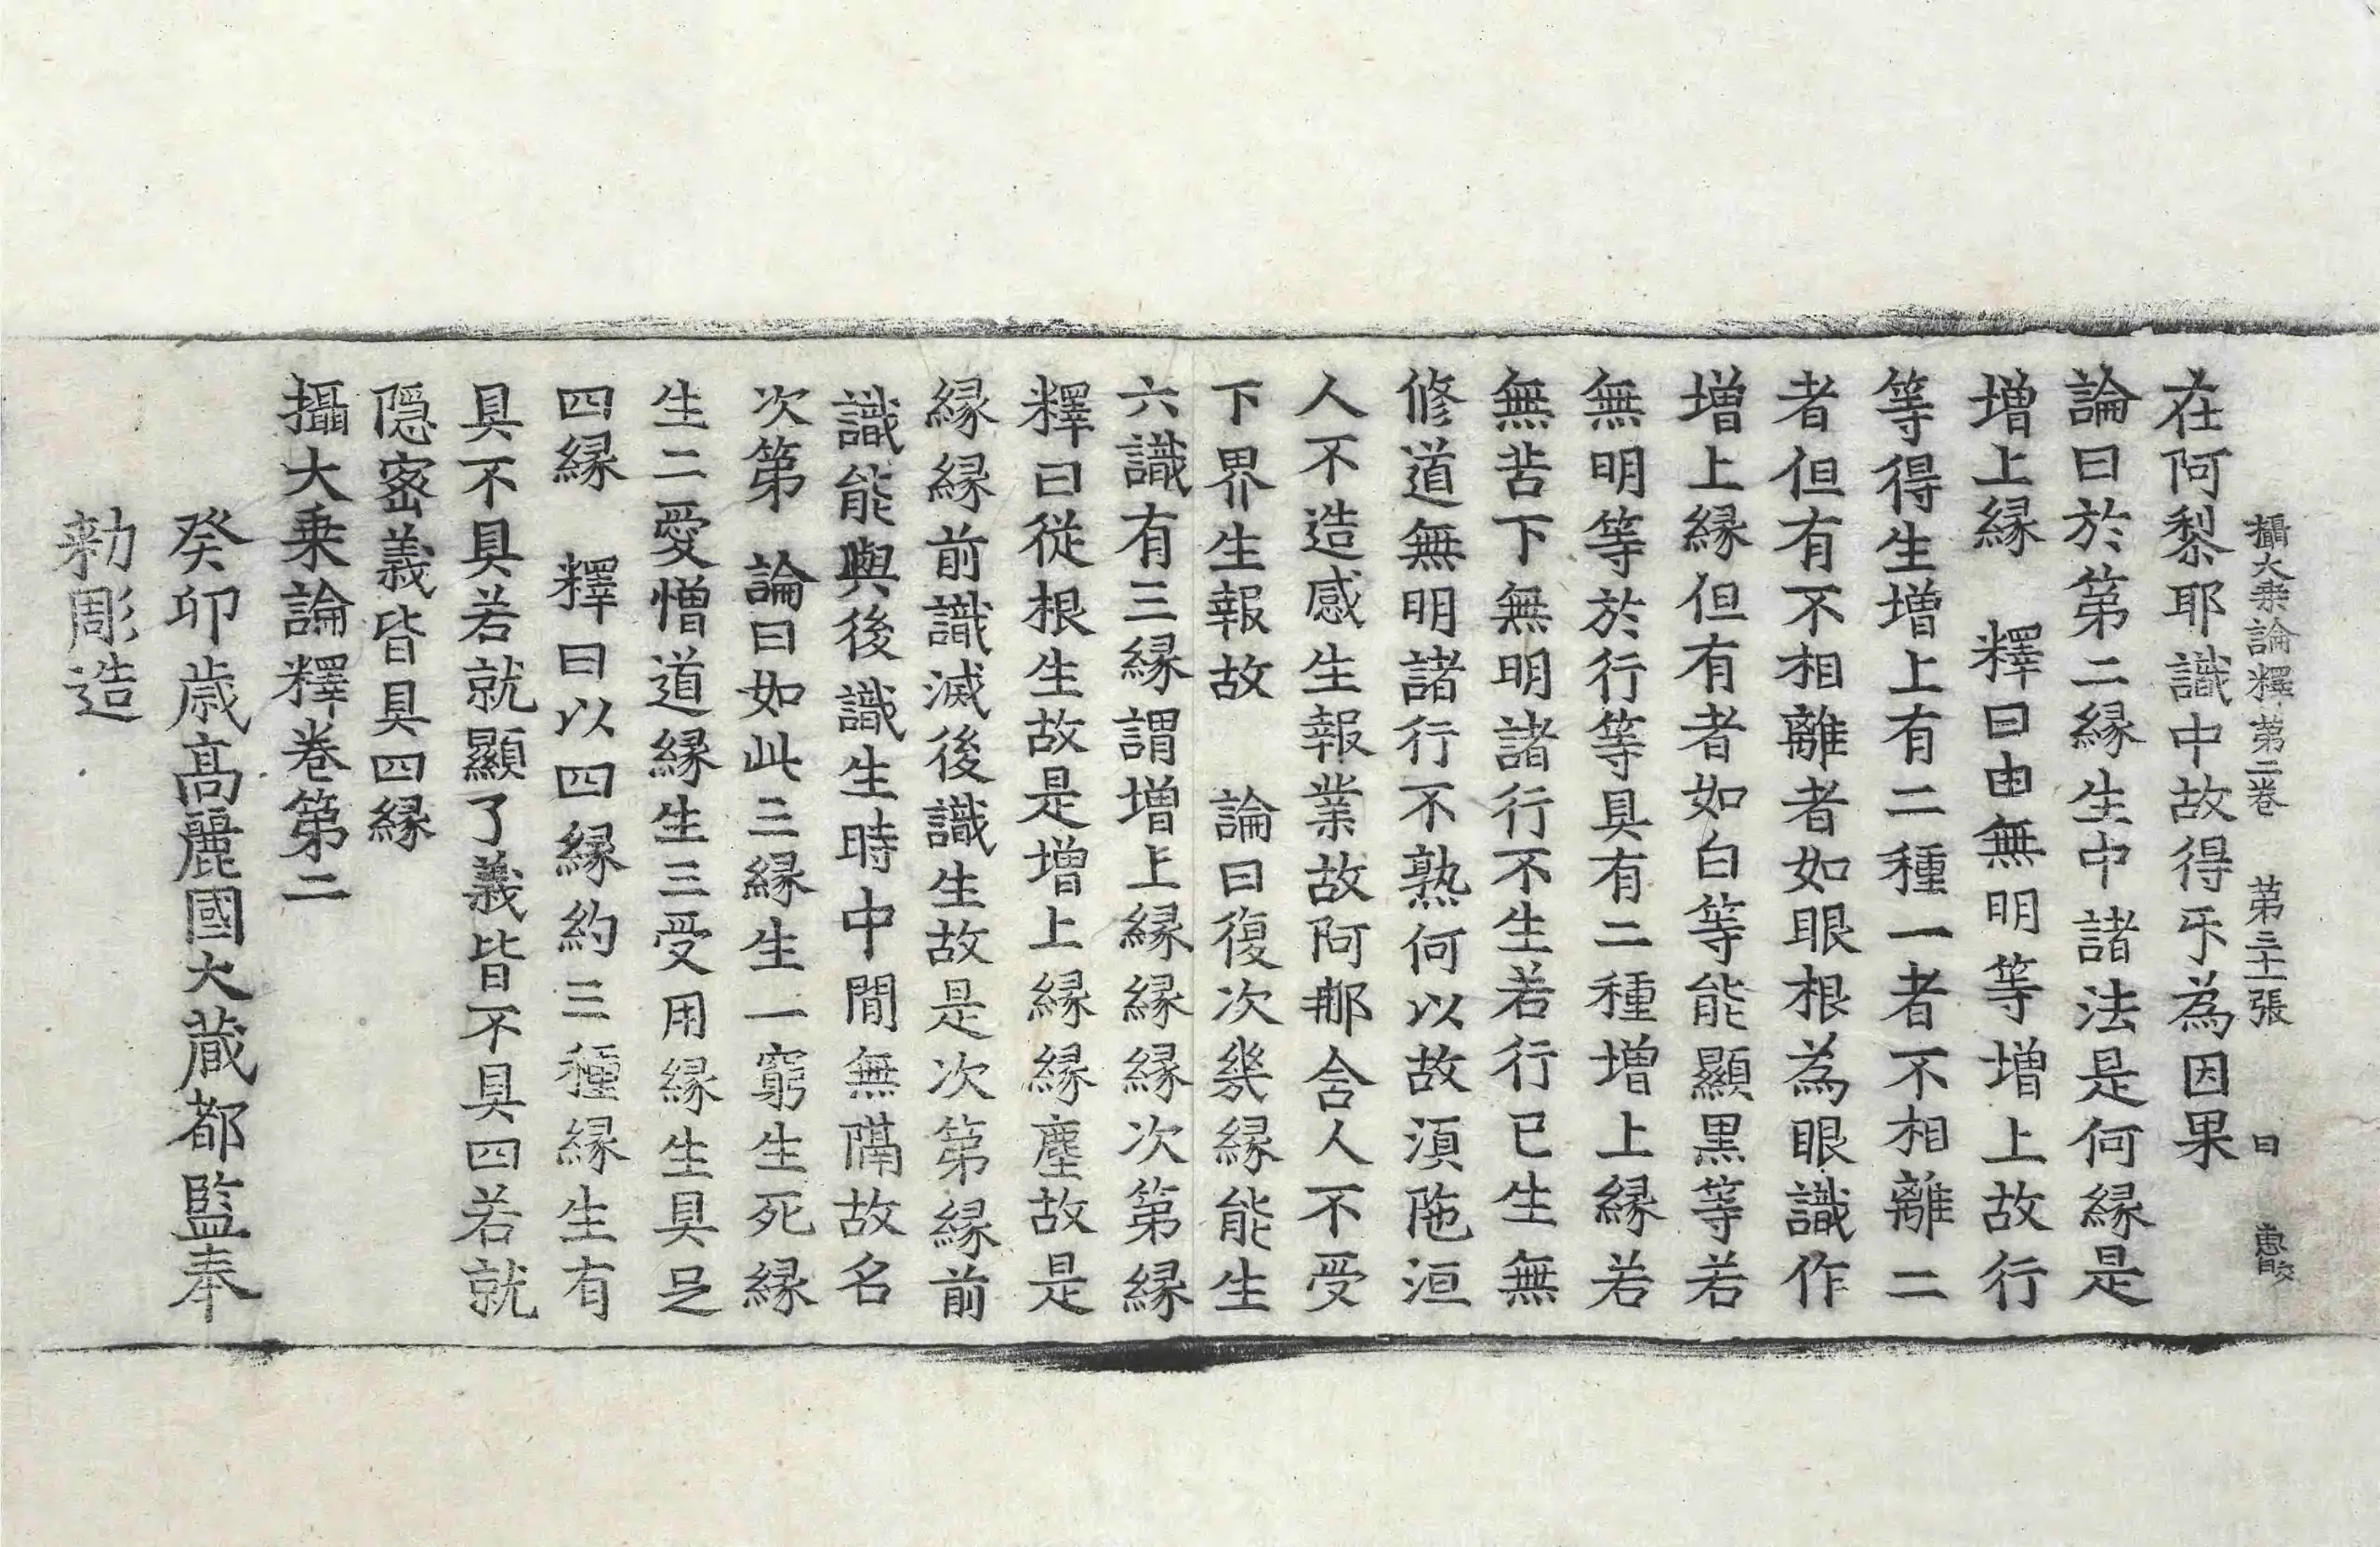 攝大乗論釋第二巻　第三十二張　曰　惠皎
在阿黎耶識中故得㸦為因果
論曰於第二縁生中諸法是何縁是
増上縁　釋曰由無明等増上故行
等得生増上有二種一者不相離二
者但有不相離者如眼根為眼識作
増上縁但有者如白等能顯黒等若
無明等於行等具有二種増上縁若
無苦下無明諸行不生若行已生無
修道無明諸行不熟何以故湏陁洹
人不造感生報業故阿那含人不受
下界生報故　論曰復次幾縁能生
六識有三縁謂増上縁縁縁次第縁
釋曰從根生故是増上縁縁塵故是
縁縁前識滅後識生故是次第縁前
識能與後識生時中間無隔故名
次第　論曰如此三縁生一窮生死縁
生二愛憎道縁生三受用縁生具足
四縁　釋曰以四縁約三種縁生有
具不具若就顯了義皆不具四若就
隠宻義皆具四縁
攝大乗論釋巻第二
癸卯歳髙麗國大蔵都監奉
勑彫造